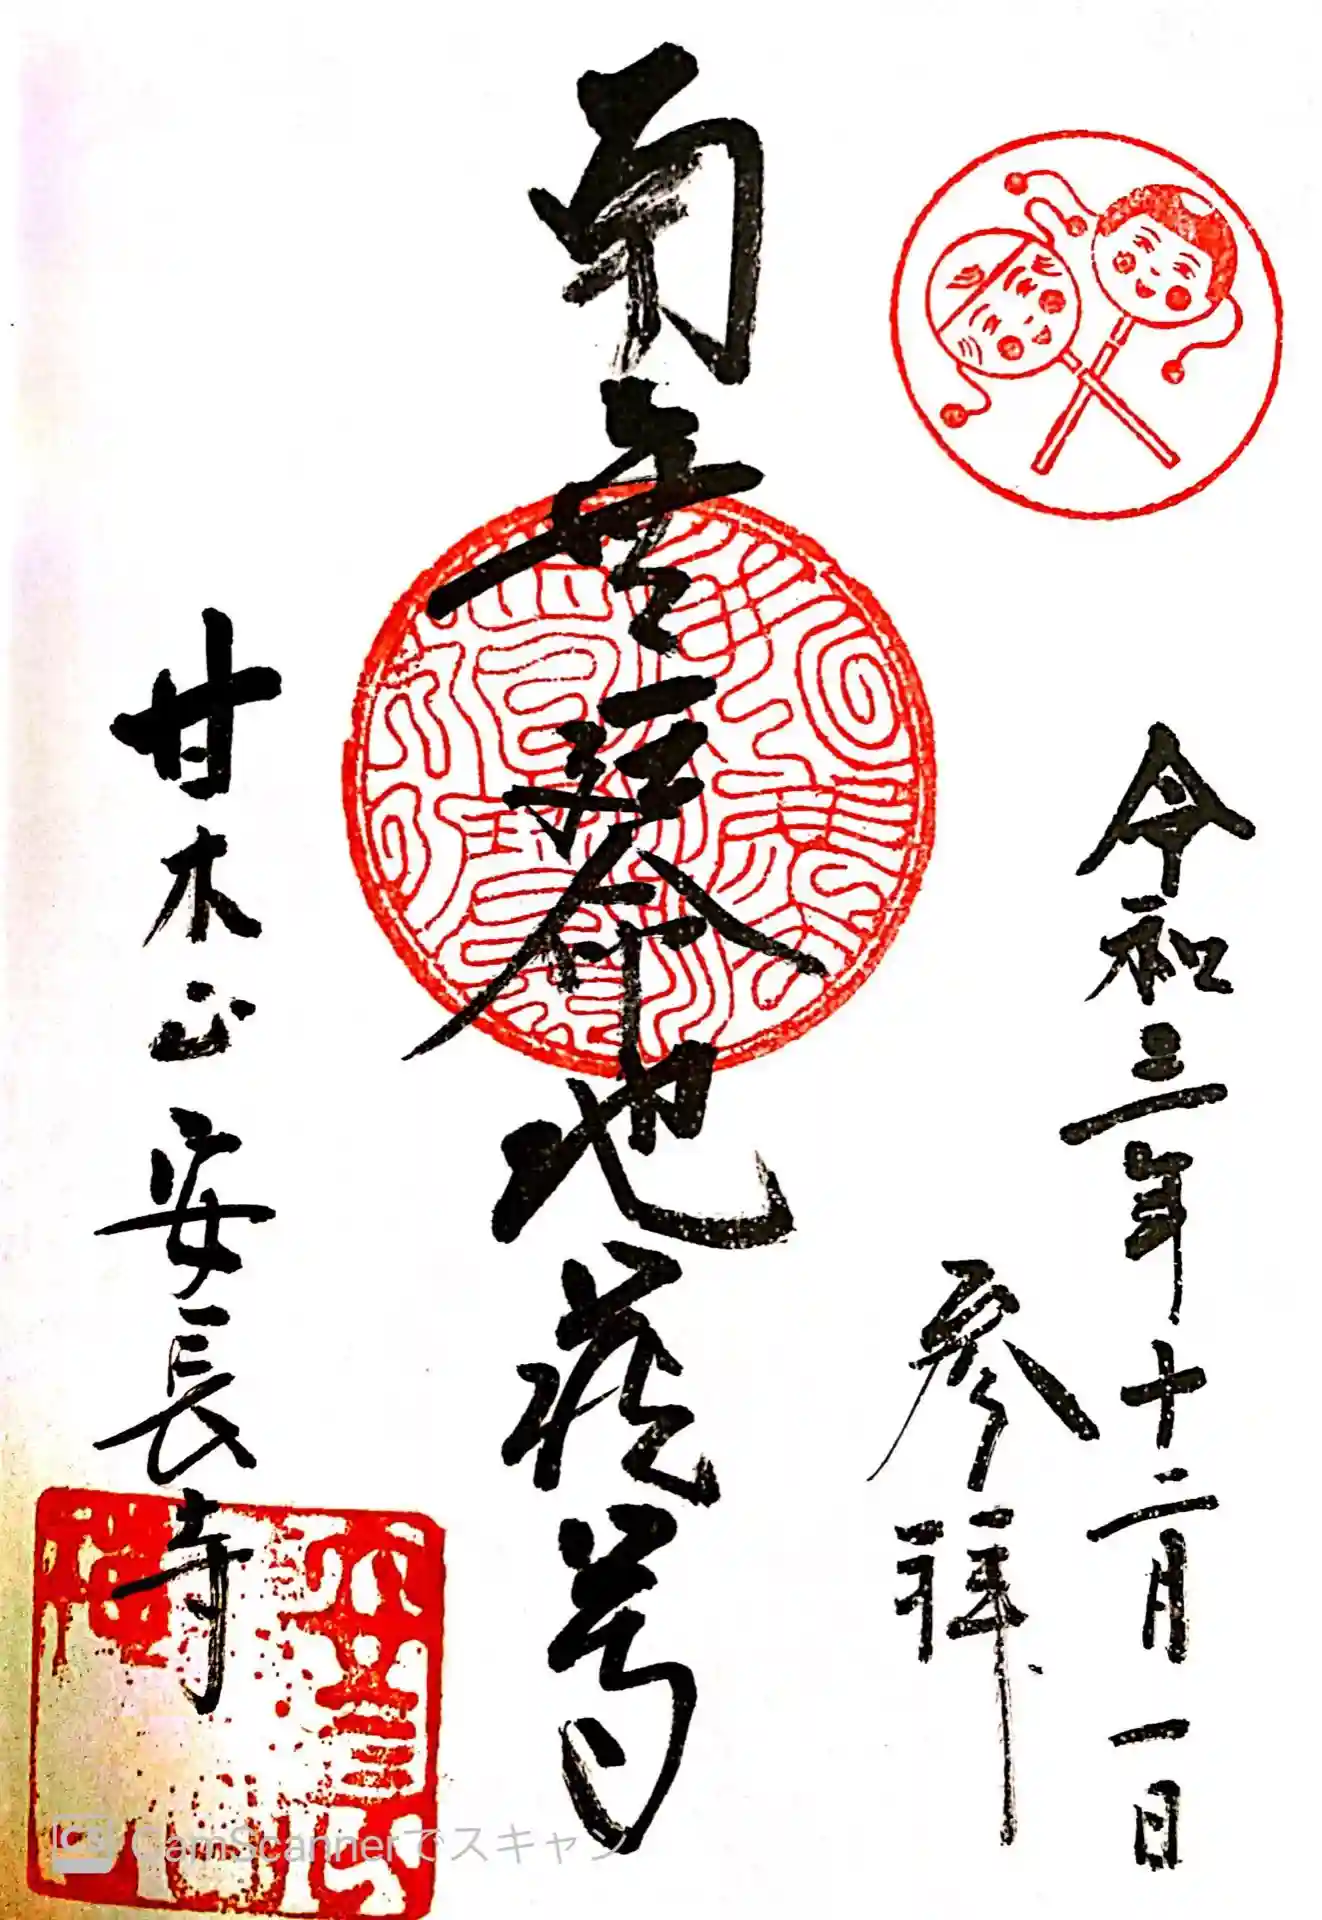 令和三年十二月一日
参拝
南無延命地蔵尊
甘木山 安長寺
CamScannerでスキャン